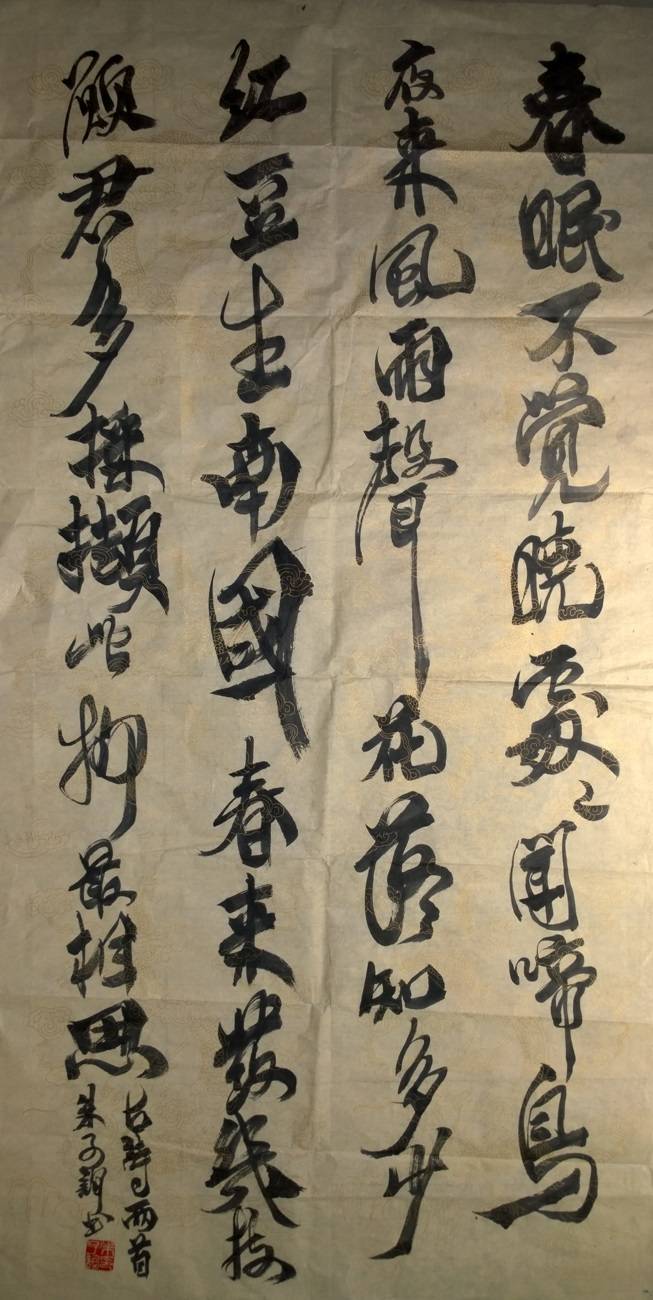 春眠不覺曉處〻聞啼鳥
夜来風雨聲花落知多少
紅豆生南國春来發幾枝
願君多採擷此物最相思
古詩兩首
朱子